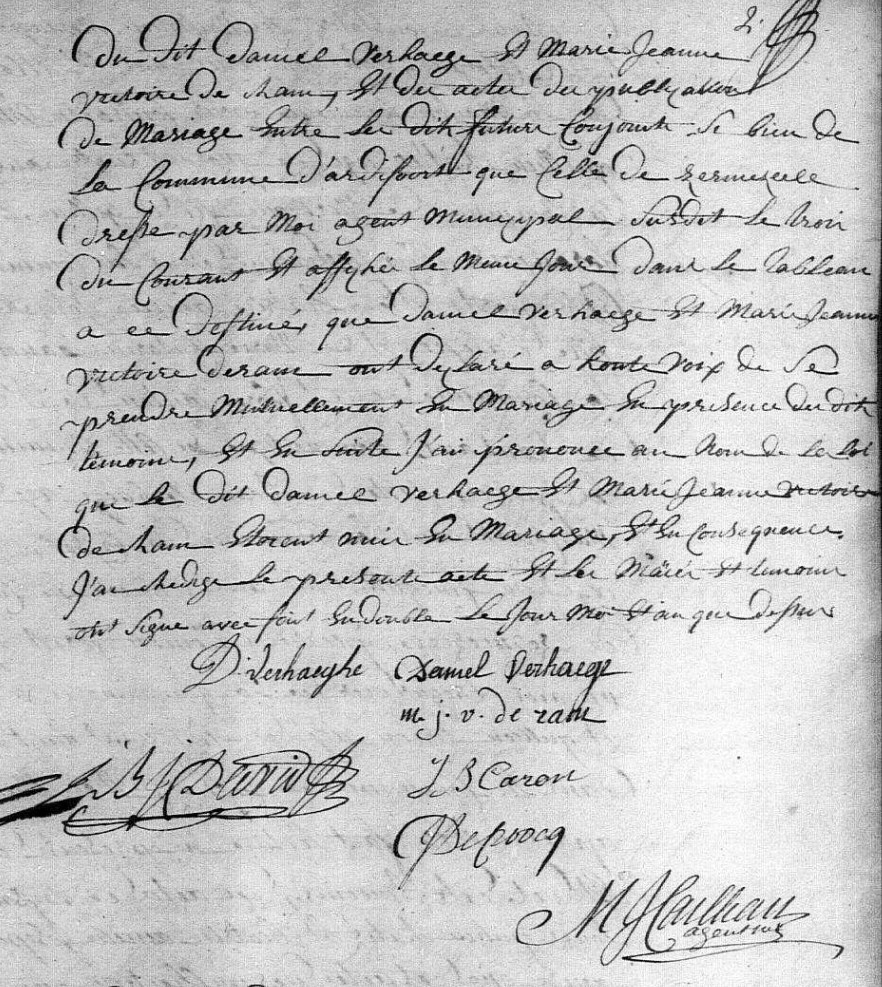 2.
du dit daniel verhaege Et Marie Jeanne
victoire de Ram, Et des actes des publication
de Mariage Entre les dits futurs Conjoints si bien de
la Commune d'ardifsort que Celle de zermezeele
dressé par Moi agent Municipal susdit le trois
du Courant Et affiché le meme Jour dans le tableau
a ce destiné, que daniel verhaege Et Marie Jeanne
victoire deram ont declaré a haute voix de se
prendre Mutuellement En Mariage En presence des dits
temoins, Et En suite J'ai prononcé au Nom de la loi
que le dit daniel verhaege Et Marie Jeanne victoire
de Ram Etoient unis En Mariage, Et En Consequence
J'ai Redigé le presente acte Et les Mariés Et temoins
ont signe avec Endouble le Jour Moi Et an que dessus
D. Verhaeghe Daniel Verhaege
m. j. v. de ram
J. B Caron
Depoocq
M J Cailleau
agent